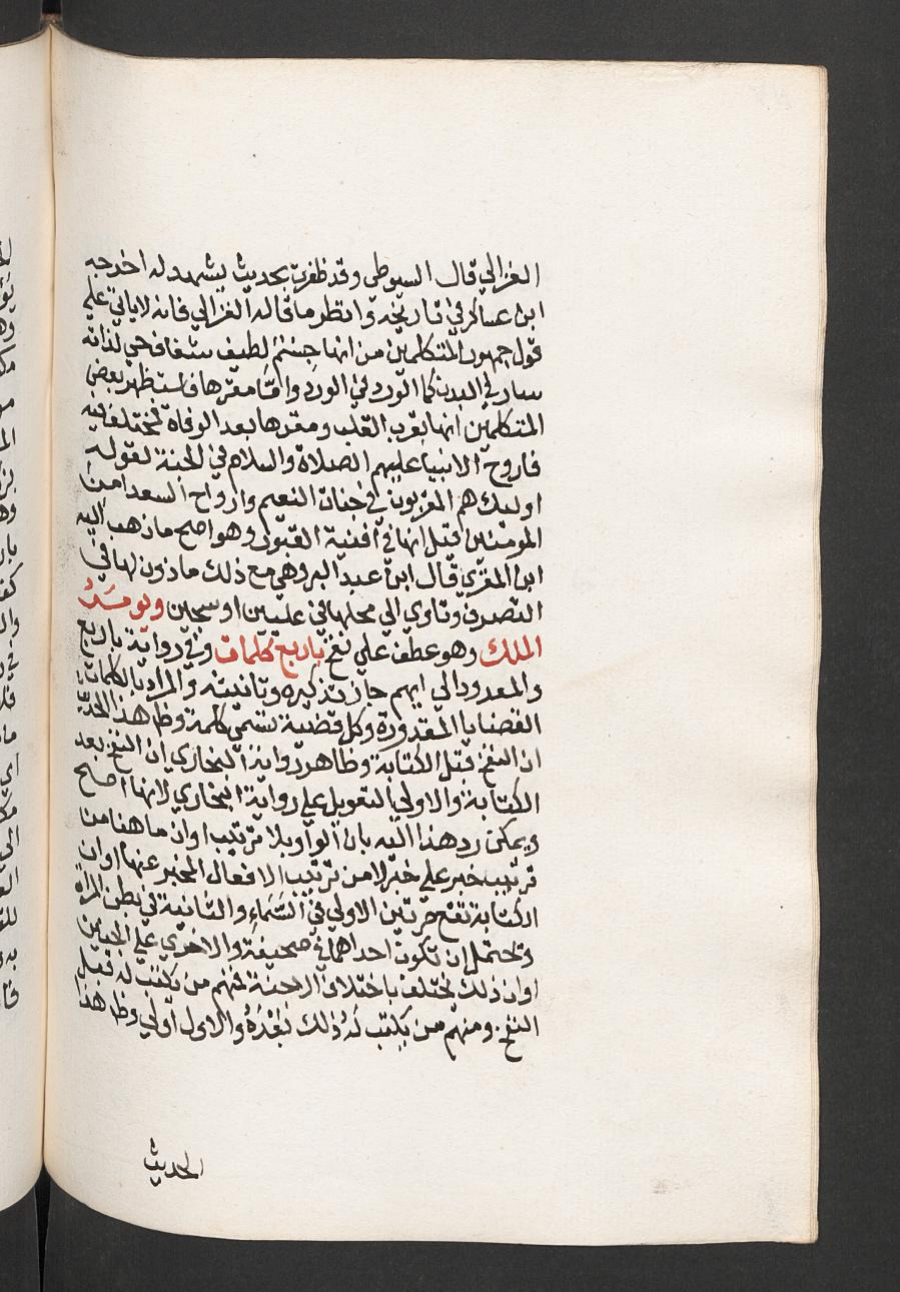 الغزالي قال السيوطي وقد ظفرت بحديث يشهد له اخرجه
ابن عساكر في تاريخه وانظر ما قاله الغزالي فانه لا ياتي علي
قول جمهور المتكلمين من انها جسم لطيف شفاف حي لذاته
سار في البدن كما الورد في الورد واما مقرها فاستظهر بعض
المتكلمين انها بقرب القلب ومقرها بعد الوفاة مختلف فيه
فاروح الانبيا عليهم الصلاة والسلام في الجنة لقوله
اوليك هم المقربون في جنات النعيم وارواح السعدا من
المومنين قيل انها في افنية القبور وهو اصح ما ذهب اليه
ابن العربي قال ابن عبد البر وهي مع ذلك ماذون لها في
التصرف وتاوي الي محلها في عليين او سجين ويومر
الملك وهو عطف علي نفخ باربع كلمات وفي رواية باربع
والمعدود الي ابهم جاز تذكيره وتانيثه والمراد بالكلمات
القضايا المقدورة وكل قضية تسمي كلمة وظاهر هذا الحديث
ان النفخ قبل الكتابة وظاهر رواية البخاري ان النفخ بعد
الكتابة والاولي التعويل علي رواية البخاري لانها اصح
ويمكن رد هذا اليه بان الواو بلا ترتيب او ان ما هنا من
ترتيب خبر علي خبر لا من ترتيب الافعال المخبر عنها او ان
الكتابة تقع مرتين الاولي في السماء والثانية في بطن المراة
وتحتمل ان تكون احداهما في صحيفة والاخري علي الجبين
او ان ذلك يختلف باختلاف الاجنة فمنهم من يكتب له قبل
النفخ ومنهم من يكتب له ذلك بعده والاول اولي وظاهر هذا
الحديث